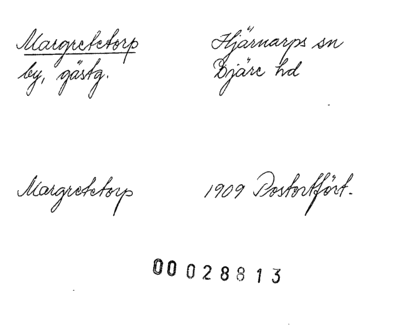 Margretetorp Hjärnarps sn
by, gästg. Bjäre hd
Margretetorp 1909 Postortfört.
00028813